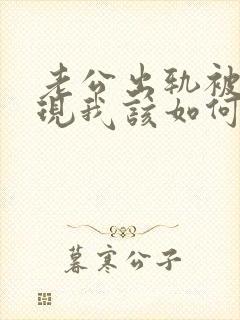 老公出轨被
现我该如何
暮寒公子